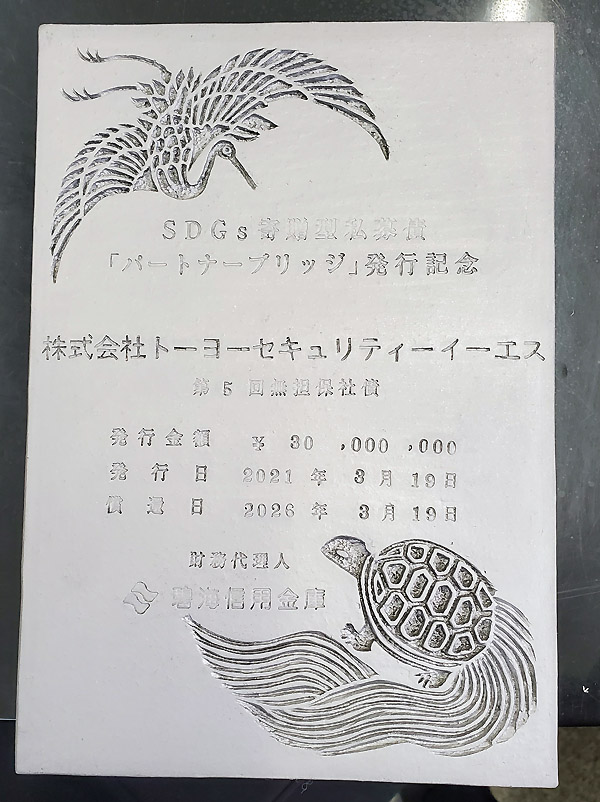 SDGs寄贈型私募債
「パートナーブリッジ」発行記念
株式会社トーヨーセキュリティーイーエス
第 5 回無担保社債
発行金額 ¥ 30 ,000 ,000
発行日 2021 年 3 月 19日
償還日 2026 年 3 月 19日
財務代理人
碧海信用金庫